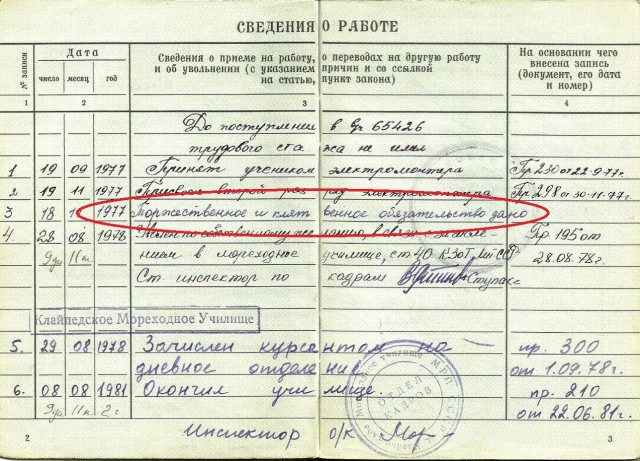 СВЕДЕНИЯ О РАБОТЕ
№ записи
Дата
число месяц год
Сведения о приеме на работу, о переводах на другую работу
и об увольнении (с указанием причин и со ссылкой
на статью, пункт закона)
На основании чего
внесена запись
(документ, его дата
и номер)
1 2 3 4
До поступления в в/ч 65426
трудового стажа не имел
1 19 09 1977 Принят учеником электромонтера Пр 230 от 22-9-77г.
2 19 11 1977 Присвоен второй разряд электромонтера Пр 298 от 30-11-77г.
3 18 1977 Торжественное и клятвенное обязательство дано
4 28 08 1978 Уволен по собственному желанию, в связи с
нием в мореходное училище, ст 40 КЗоТ Лит ССР
Пр 195 от
28.08.78г.
Ст. инспектор по кадрам
Клайпедское Мореходное Училище
5. 29 08 1978 Зачислен курсантом на
дневное отделение
пр. 300
от 1.09.78г.
6. 08 08 1981 Окончил училище.
пр. 210
от 22.06.81г.
9 дн 11 м 2 г
ОТДЕЛ
КАДРОВ
Инспектор о/к
2 3